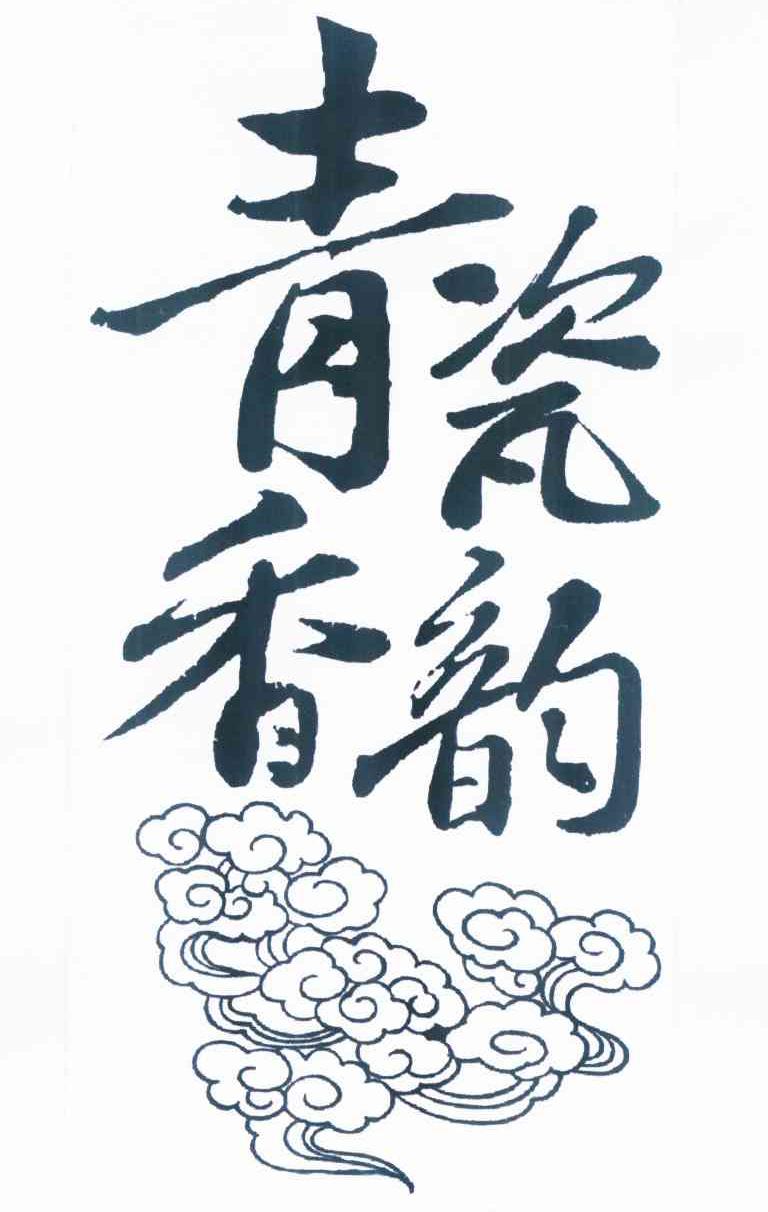 青瓷
香韵